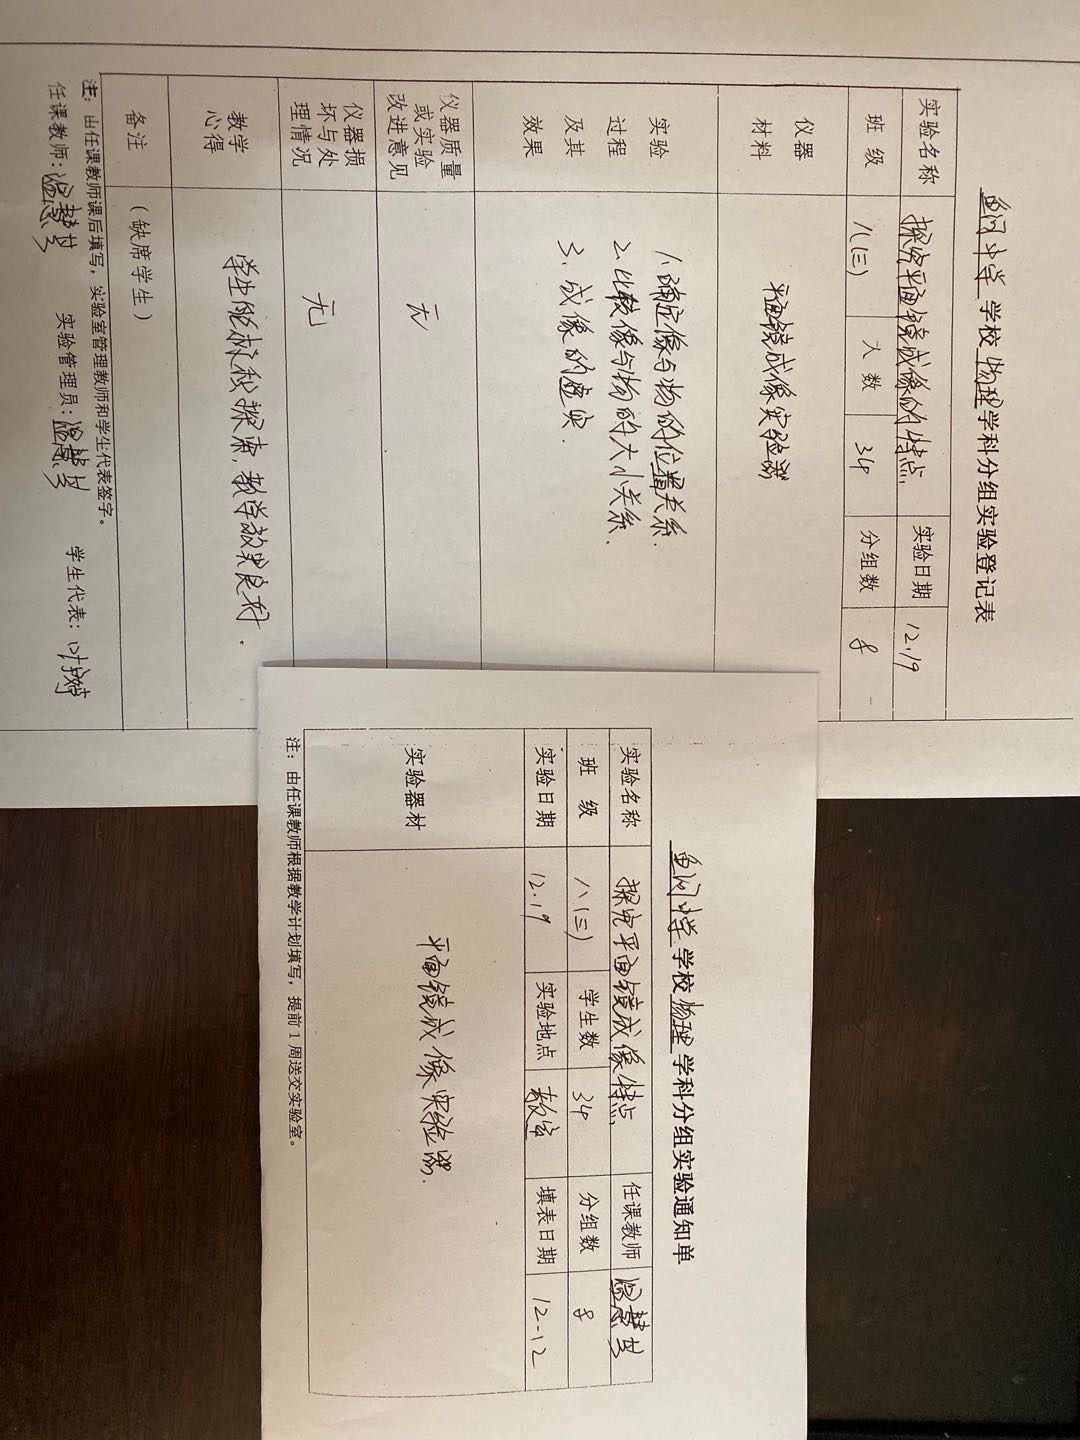 鱼闪中学 学校 物理 学科分组实验登记表
实验名称 探究平面镜成像的特点 实验日期 12.19
班 级 八(三) 人 数 34 分组数 8
仪器材料 平面镜成像实验器
实验过程及其效果
1.确定像与物的位置关系.
2.比较像与物的大小关系.
3.成像的虚实.
仪器质量或实验改进意见 无
仪器损坏与处理情况 无
教学心得 学生能积极探索,教学效果良好.
备注 (缺席学生)
注:由任课教师课后填写,实验室管理教师和学生代表签字。
任课教师: 实验管理员: 学生代表:
中学 学校 物理 学科分组实验通知单
实验名称 探究平面镜成像特点 任课教师
班 级 八(三) 学生数 34 分组数 8
实验日期 12.19 实验地点 教室 填表日期 12-12
实验器材 平面镜成像实验器.
注:由任课教师根据教学计划填写,提前1周送交实验室。